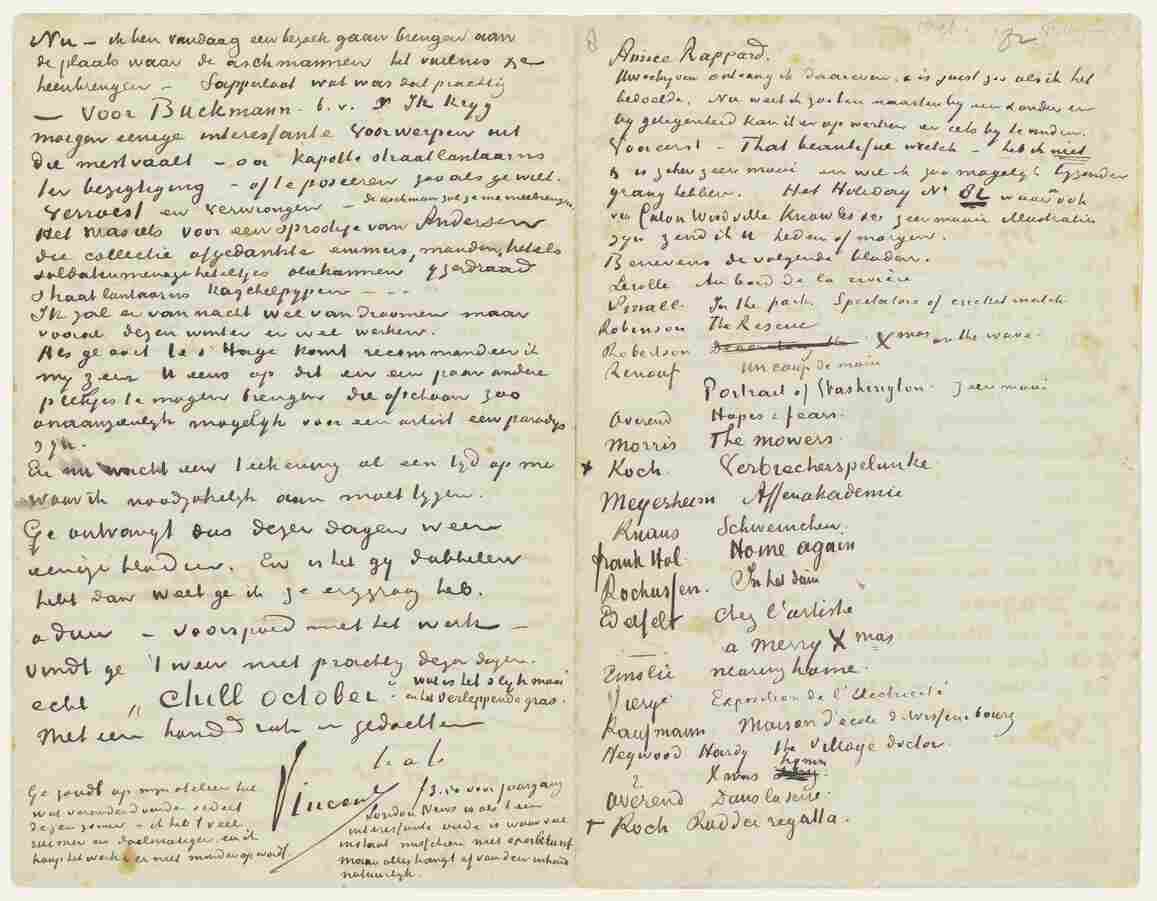 Nu – ik ben vandaag een bezoek gaan brengen aan
de plaats waar de aschmannen het vuilnis &c
heenbrengen – Sapperloot wat was dat prachtig
– voor Buckmann – b.v. Ik krijg
morgen eenige interessante voorwerpen uit
die mestvaalt – oa kapotte straatlantaarns
ter bezigtiging – of te poseeren zoo als ge wilt.
verroest en verwrongen – de aschman zal ze me meebrengen
Het was iets voor een sprookje van Andersen
die collectie afgedankte emmers, manden, ketels
soldatenmenageketeltjes oliekannen yzerdraad
straatlantaarns kagchelpypen – – –
Ik zal er van nacht wel van droomen maar
vooral dezen winter er wel werken.
Als ge ooit te s'Hage komt recommandeer ik
my zeer U eens op dit en een paar andere
plekjes te mogen brengen die ofschoon zoo
onaanzienlyk mogelyk voor een artist een paradys
zyn.
En nu wacht een teekening al een tyd op me
waar ik noodzakelyk aan moet tygen.
Ge ontvangt dus dezer dagen weer
eenige bladen. En is het gy dubbelen
hebt dan weet ge ik ze erg graag heb.
adieu – voorspoed met het werk –
vindt ge 't weer niet prachtig dezer dagen.
echt „chill october" wat is het slyk mooi
en het verleppende gras.
Met een handdruk in gedachten
t. à t.
Vincent
Ge zoudt op myn atelier het
wat veranderd vinden sedert
dezen zomer – ik heb 't veel
ruimer en doelmatiger en ik
hoop het werk er niet minder op wordt
f3.50 voor jaargang
London News is als t een
interessante vuide is waar veel
instaat misschien niet
maar alles hangt af van den inhoud
natuurlyk.
32
Amice Rappard.
Uw schryven ontvang ik daareven, & is juist zoo als ik het
bedoelde. Nu weet ik zoo ten naastenby een & ander en
by gelegenheid kan ik er op werken er iets by te vinden.
Vooreerst – That beautiful wretch – heb ik niet
& is zeker zeer mooi en wil ik zoo mogelyk byzonder
graag hebben. Het Holiday No 82 waarin ook
van Caton Woodville Knowles &c zeer mooie illustraties
zyn zend ik U heden of morgen.
Benevens de volgende bladen.
Lerolle Au bord de la rivière
Small In the park Spectators of cricket match
Robinson The Rescue
Robertson Xmas on the wave.
Renouf Un coup de main
Portrait of Washington zeer mooi
Overend Hopes & fears.
Morris The mowers.
x Koch. Verbrecherspelunke
Meyerheim Affenakademie
Knaus Schweinchen.
frank Hol Home again
Rochussen. In het duin
Edelfelt Chez l'artiste
a merry Xmas
Emslie nearing home.
Vierge Exposition de l'électricité
Kaufmann Maison d'école d. Wissenbourg
Heywood Hardy the village doctor
? Xmas hymn
Overend Dans la serre.
+ Koch Radderregatta.